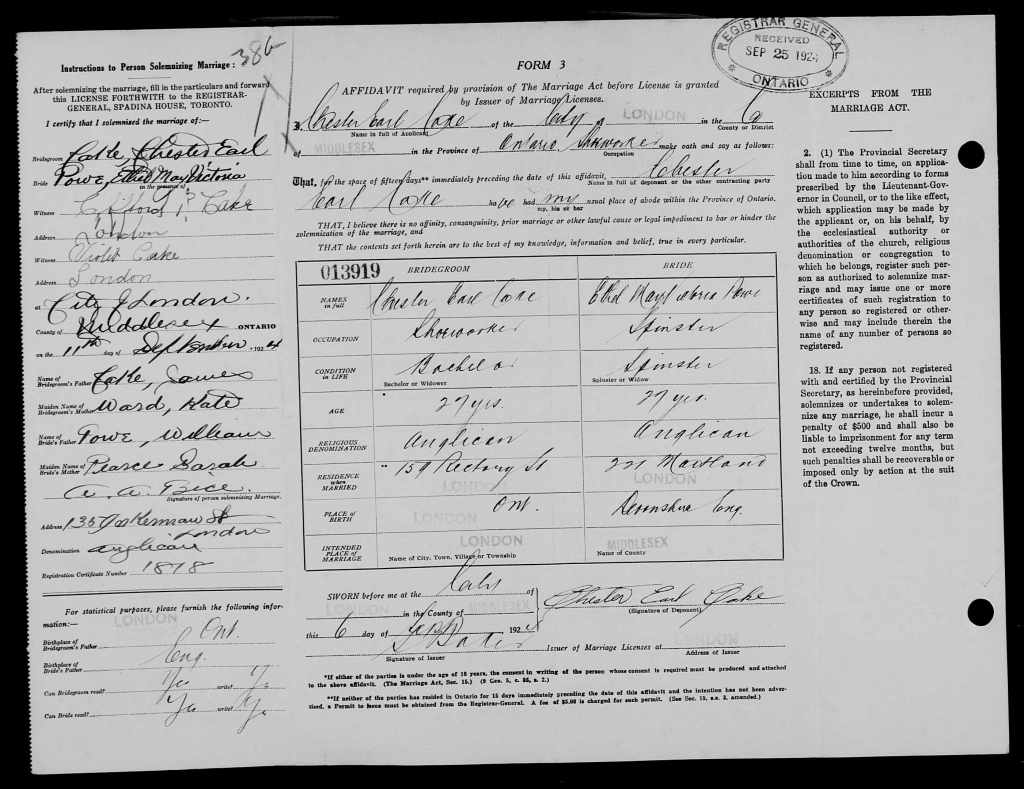 386
Instructions to Person Solemnizing Marriage:
After solemnizing the marriage, fill in the particulars and forward
this LICENSE FORTHWITH to the REGISTRAR-
GENERAL, SPADINA HOUSE, TORONTO.
I certify that I solemnised the marriage of:—
Bridegroom Cake, Chester Earl
Bride Powe, Ethel May Victoria
in the presence of
Witness Clifford P. Cake
Address London
Witness Violet Cake
Address London
at City of London.
County of Middlesex ONTARIO
on the 11th day of September 1924
Name of Bridegroom's Father Cake, James
Maiden Name of Bridegroom's Mother Ward, Kate
Name of Bride's Father Powe, William
Maiden Name of Bride's Mother Pearce Sarah
A. A. Bice.
Signature of person solemnizing Marriage.
Address 135 St
London
Denomination Anglican
Registration Certificate Number 1878
For statistical purposes, please furnish the following infor-
mation:—
LONDON
Birthplace of Bridegroom's Father Ont.
Birthplace of Bride's Father Eng.
Can Bridegroom read? Yes write? Yes
Can Bride read? Yes write? Yes
REGISTRAR GENERAL
RECEIVED
SEP 25 1924
ONTARIO
FORM 3
AFFIDAVIT required by provision of The Marriage Act before License is granted
by Issuer of Marriage Licenses.
I, Chester Earl Cake of the City of LONDON in the Co
Name in full of Applicant County or District
of MIDDLESEX in the Province of Ontario Shoeworker make oath and say as follows:
Occupation
That, for the space of fifteen days** immediately preceding the date of this affidavit, Chester
Name in full of deponent or the other contracting party
Earl Cake have had my usual place of abode within the Province of Ontario.
my, his or her
THAT, I believe there is no affinity, consanguinity, prior marriage or other lawful cause or legal impediment to bar or hinder the
solemnization of the marriage, and
THAT the contents set forth herein are to the best of my knowledge, information and belief, true in every particular.
013919 BRIDEGROOM BRIDE
NAMES in full Chester Earl Cake Ethel May Victoria Powe
OCCUPATION Shoeworker Spinster
CONDITION in LIFE Bachelor Spinster
Bachelor or Widower Spinster or Widow
AGE 27 yrs. 27 yrs.
RELIGIOUS DENOMINATION Anglican Anglican
RESIDENCE when MARRIED 159 Rectory St 221 Maitland
LONDON LONDON
PLACE of BIRTH LONDON Ont. Devonshire Eng.
INTENDED PLACE of MARRIAGE LONDON MIDDLESEX
Name of City, Town, Village or Township Name of County
SWORN before me at the City of
LONDON in the County of MIDDLESEX
Chester Earl Cake
(Signature of Deponent)
this 6 day of Sept 1924
LONDON
Issuer of Marriage Licenses at
Signature of Issuer Address of Issuer
*If either of the parties is under the age of 18 years, the consent in writing of the person whose consent is required must be produced and attached
to the above affidavit. (The Marriage Act, Sec. 15.) (9 Geo. 5, c. 35, s. 2.)
**If neither of the parties has resided in Ontario for 15 days immediately preceding the date of this affidavit and the intention has not been adver-
tised, a Permit to Issue must be obtained from the Registrar-General. A fee of $5.00 is charged for such permit. (See Sec. 13, s.s. 2, amended.)
EXCERPTS FROM THE
MARRIAGE ACT.
2. (1) The Provincial Secretary
shall from time to time, on applica-
tion made to him according to forms
prescribed by the Lieutenant-Gov-
ernor in Council, or to the like effect,
which application may be made by
the applicant or, on his behalf, by
the ecclesiastical authority or
authorities of the church, religious
denomination or congregation to
which he belongs, register such per-
son as authorized to solemnize mar-
riage and may issue one or more
certificates of such registration to
any person so registered or other-
wise and may include therein the
name of any number of persons so
registered.
18. If any person not registered
with and certified by the Provincial
Secretary, as hereinbefore provided,
solemnizes or undertakes to solem-
nize any marriage, he shall incur a
penalty of $500 and shall also be
liable to imprisonment for any term
not exceeding twelve months, but
such penalties shall be recoverable or
imposed only by action at the suit
of the Crown.